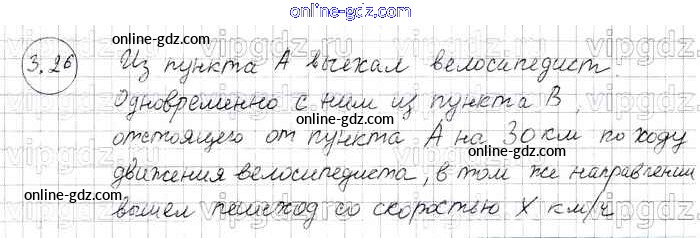 online-gdz.com
3.26 Из пункта А выехал велосипедист.
online-gdz.com
online-gdz.com
Одновременно с ним из пункта В,
отстоящего от пункта А на 30 км по ходу
online-gdz.com
движения велосипедиста, в том же направлении
online-gdz.com
online-gdz.com
вышел пешеход со скоростью х км/ч
online-gdz.com